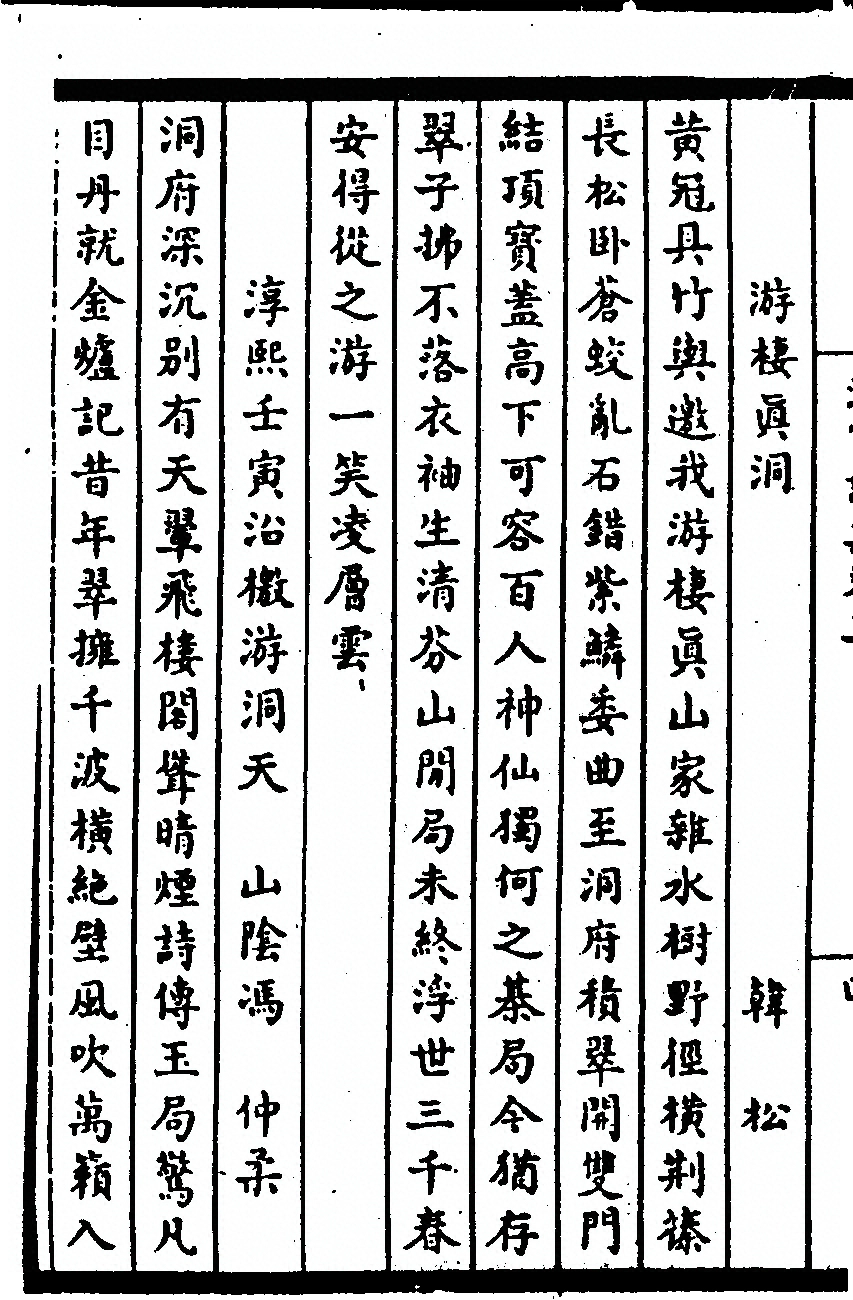 游棲眞洞 韓松
黃冠具竹輿邀我游棲眞山家雜水樹野徑橫荆蓁
長松卧蒼蛟亂石錯紫鱗委曲至洞府積翠開雙門
結頂寶蓋高下可容百人神仙獨何之棊局今猶存
翠子拂不落衣袖生清芬山閒局未終浮世三千春
安得從之游一笑凌層雲
淳熙壬寅沿檄游洞天 山陰馮 仲柔
洞府深沉別有天翬飛棲閣聳晴煙詩傳玉局驚凡
目丹就金爐記昔年翠擁千波橫絶壁風吹萬籟入